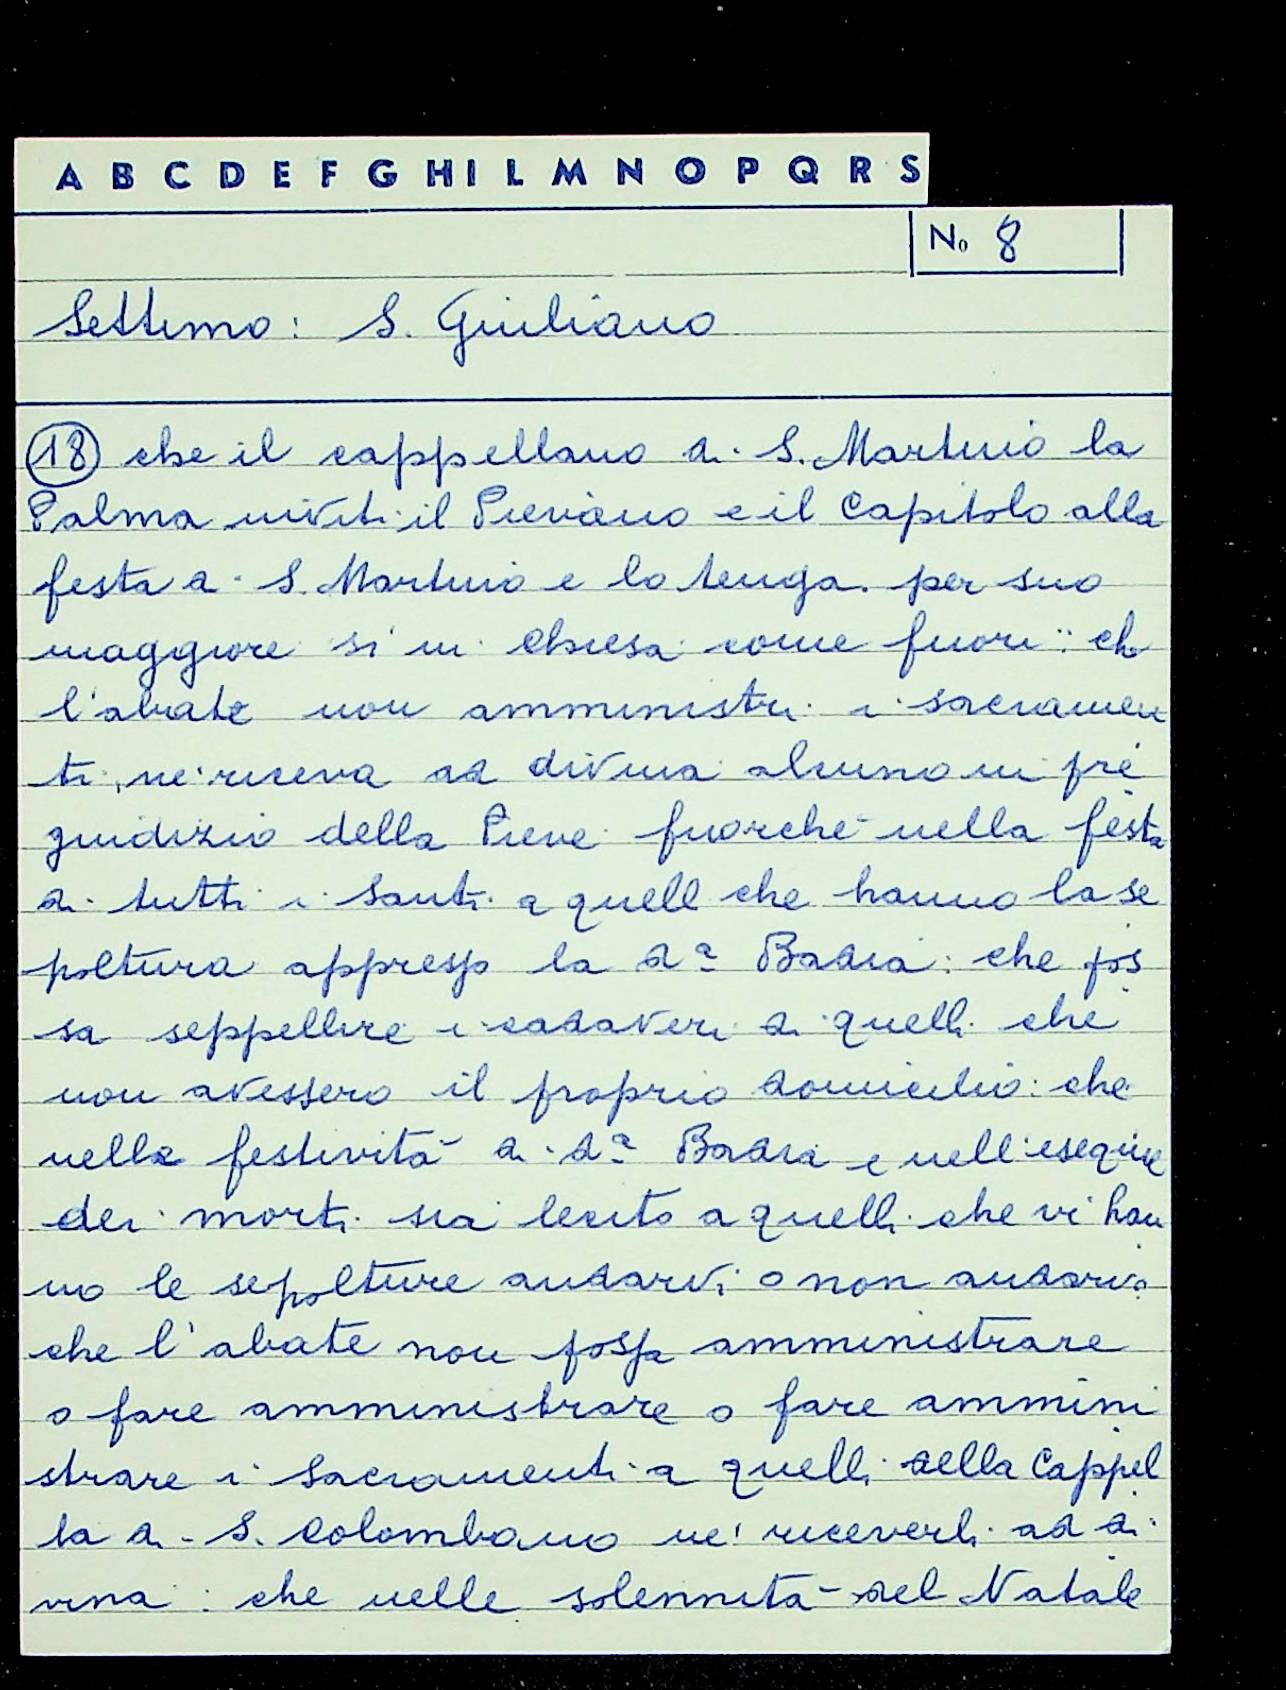 A B C D E F G H I L M N O P Q R S
No 8
Settimo: S. Giuliano
18 che il cappellano di S. Martino la
Palma inviti il Pievano e il Capitolo alla
festa di S. Martino e lo tenga per suo
maggiore sì in Chiesa come fuori: che
l'abate non amministri i sacramen
ti, né riceva ad divina alcuno in pre
giudizio della Pieve fuorché nella festa
di tutti i Santi a quelli che hanno la se
poltura appresso la da Badia: che pos
sa seppellire i cadaveri di quelli che
non avessero il proprio domicilio: che
nelle festività di da Badia e nell'esequie
dei morti sia lecito a quelli che vi han
no le sepolture andarvi o non andarvi:
che l'abate non possa amministrare
o fare amministrare o fare ammini
strare i Sacramenti a quelli della Cappel
la di S. Colombano né riceverli ad di
vina: che nelle solennità del Natale